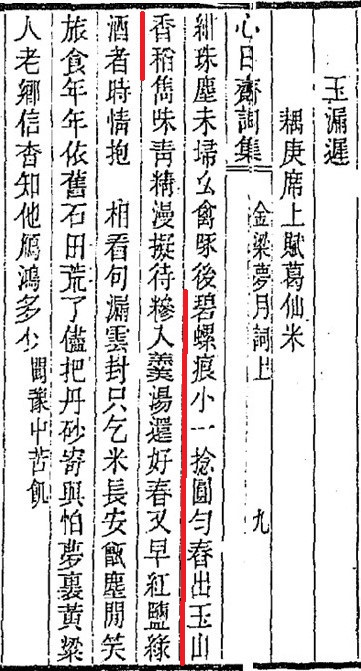 玉漏遲
耦庚席上賦葛仙米
心日齋詞集 金梁夢月詞上 九
紺珠塵未埽幺禽啄後碧螺痕小一捻圓勻春出玉山
香稻儁味青精漫擬待糝入羹湯還好春又早紅鹽綠
酒者時情抱 相看句漏雲封只乞米長安甑塵閒笑
旅食年年依舊石田荒了儘把丹砂寄與怕夢裏黃粱
人老鄉信杳知他鴈鴻多少 閩豫中苦飢